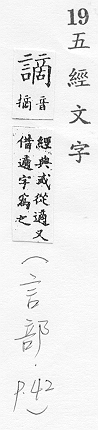 19五經文字
謫音摘經典或從適又
借適字為之
(言部.
P.42)